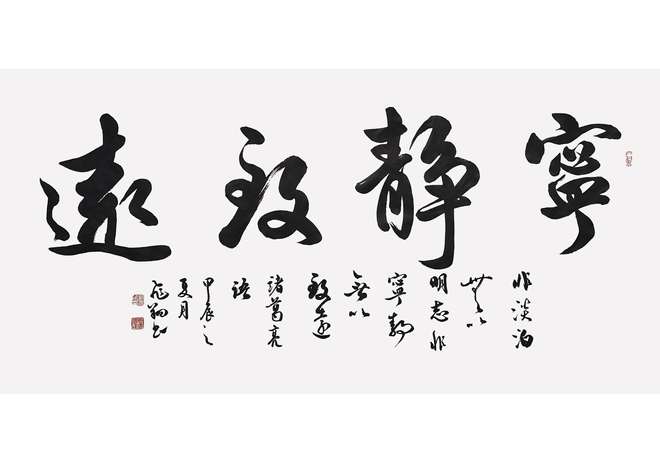 寧静致遠
非淡泊
無以
明志非
寧静
無以
致遠
諸葛亮
語
甲辰之
夏月